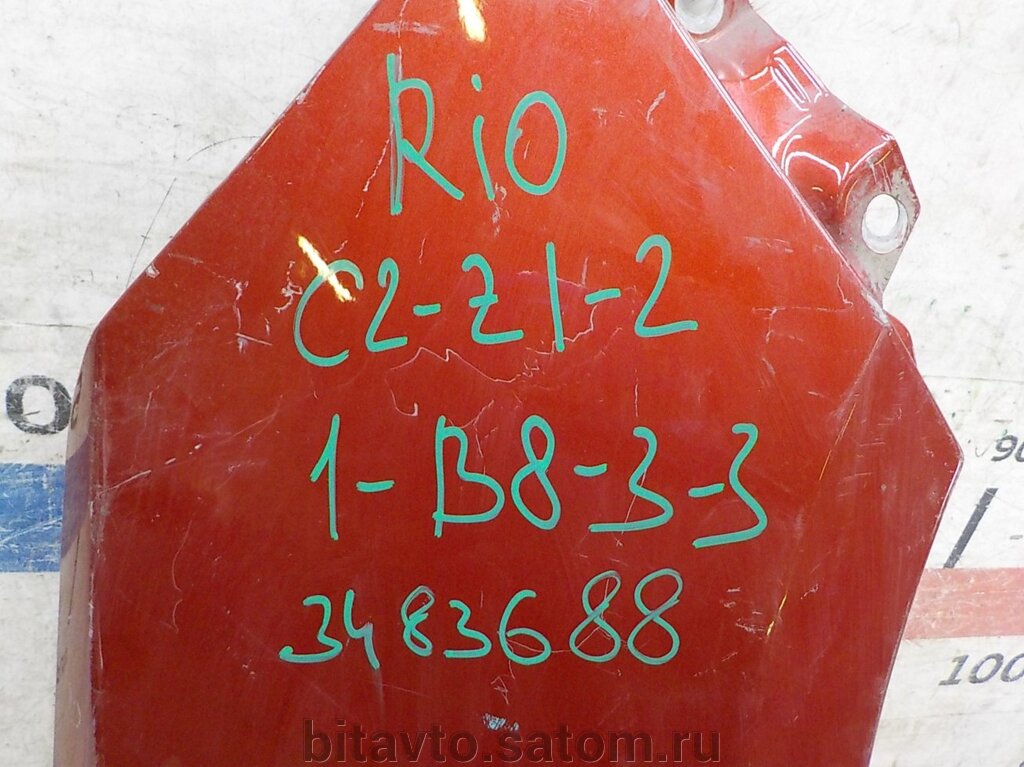 Rio
C2-Z1-2
1-B8-3-3
3483688
O
90
100
bitavto.satom.ru